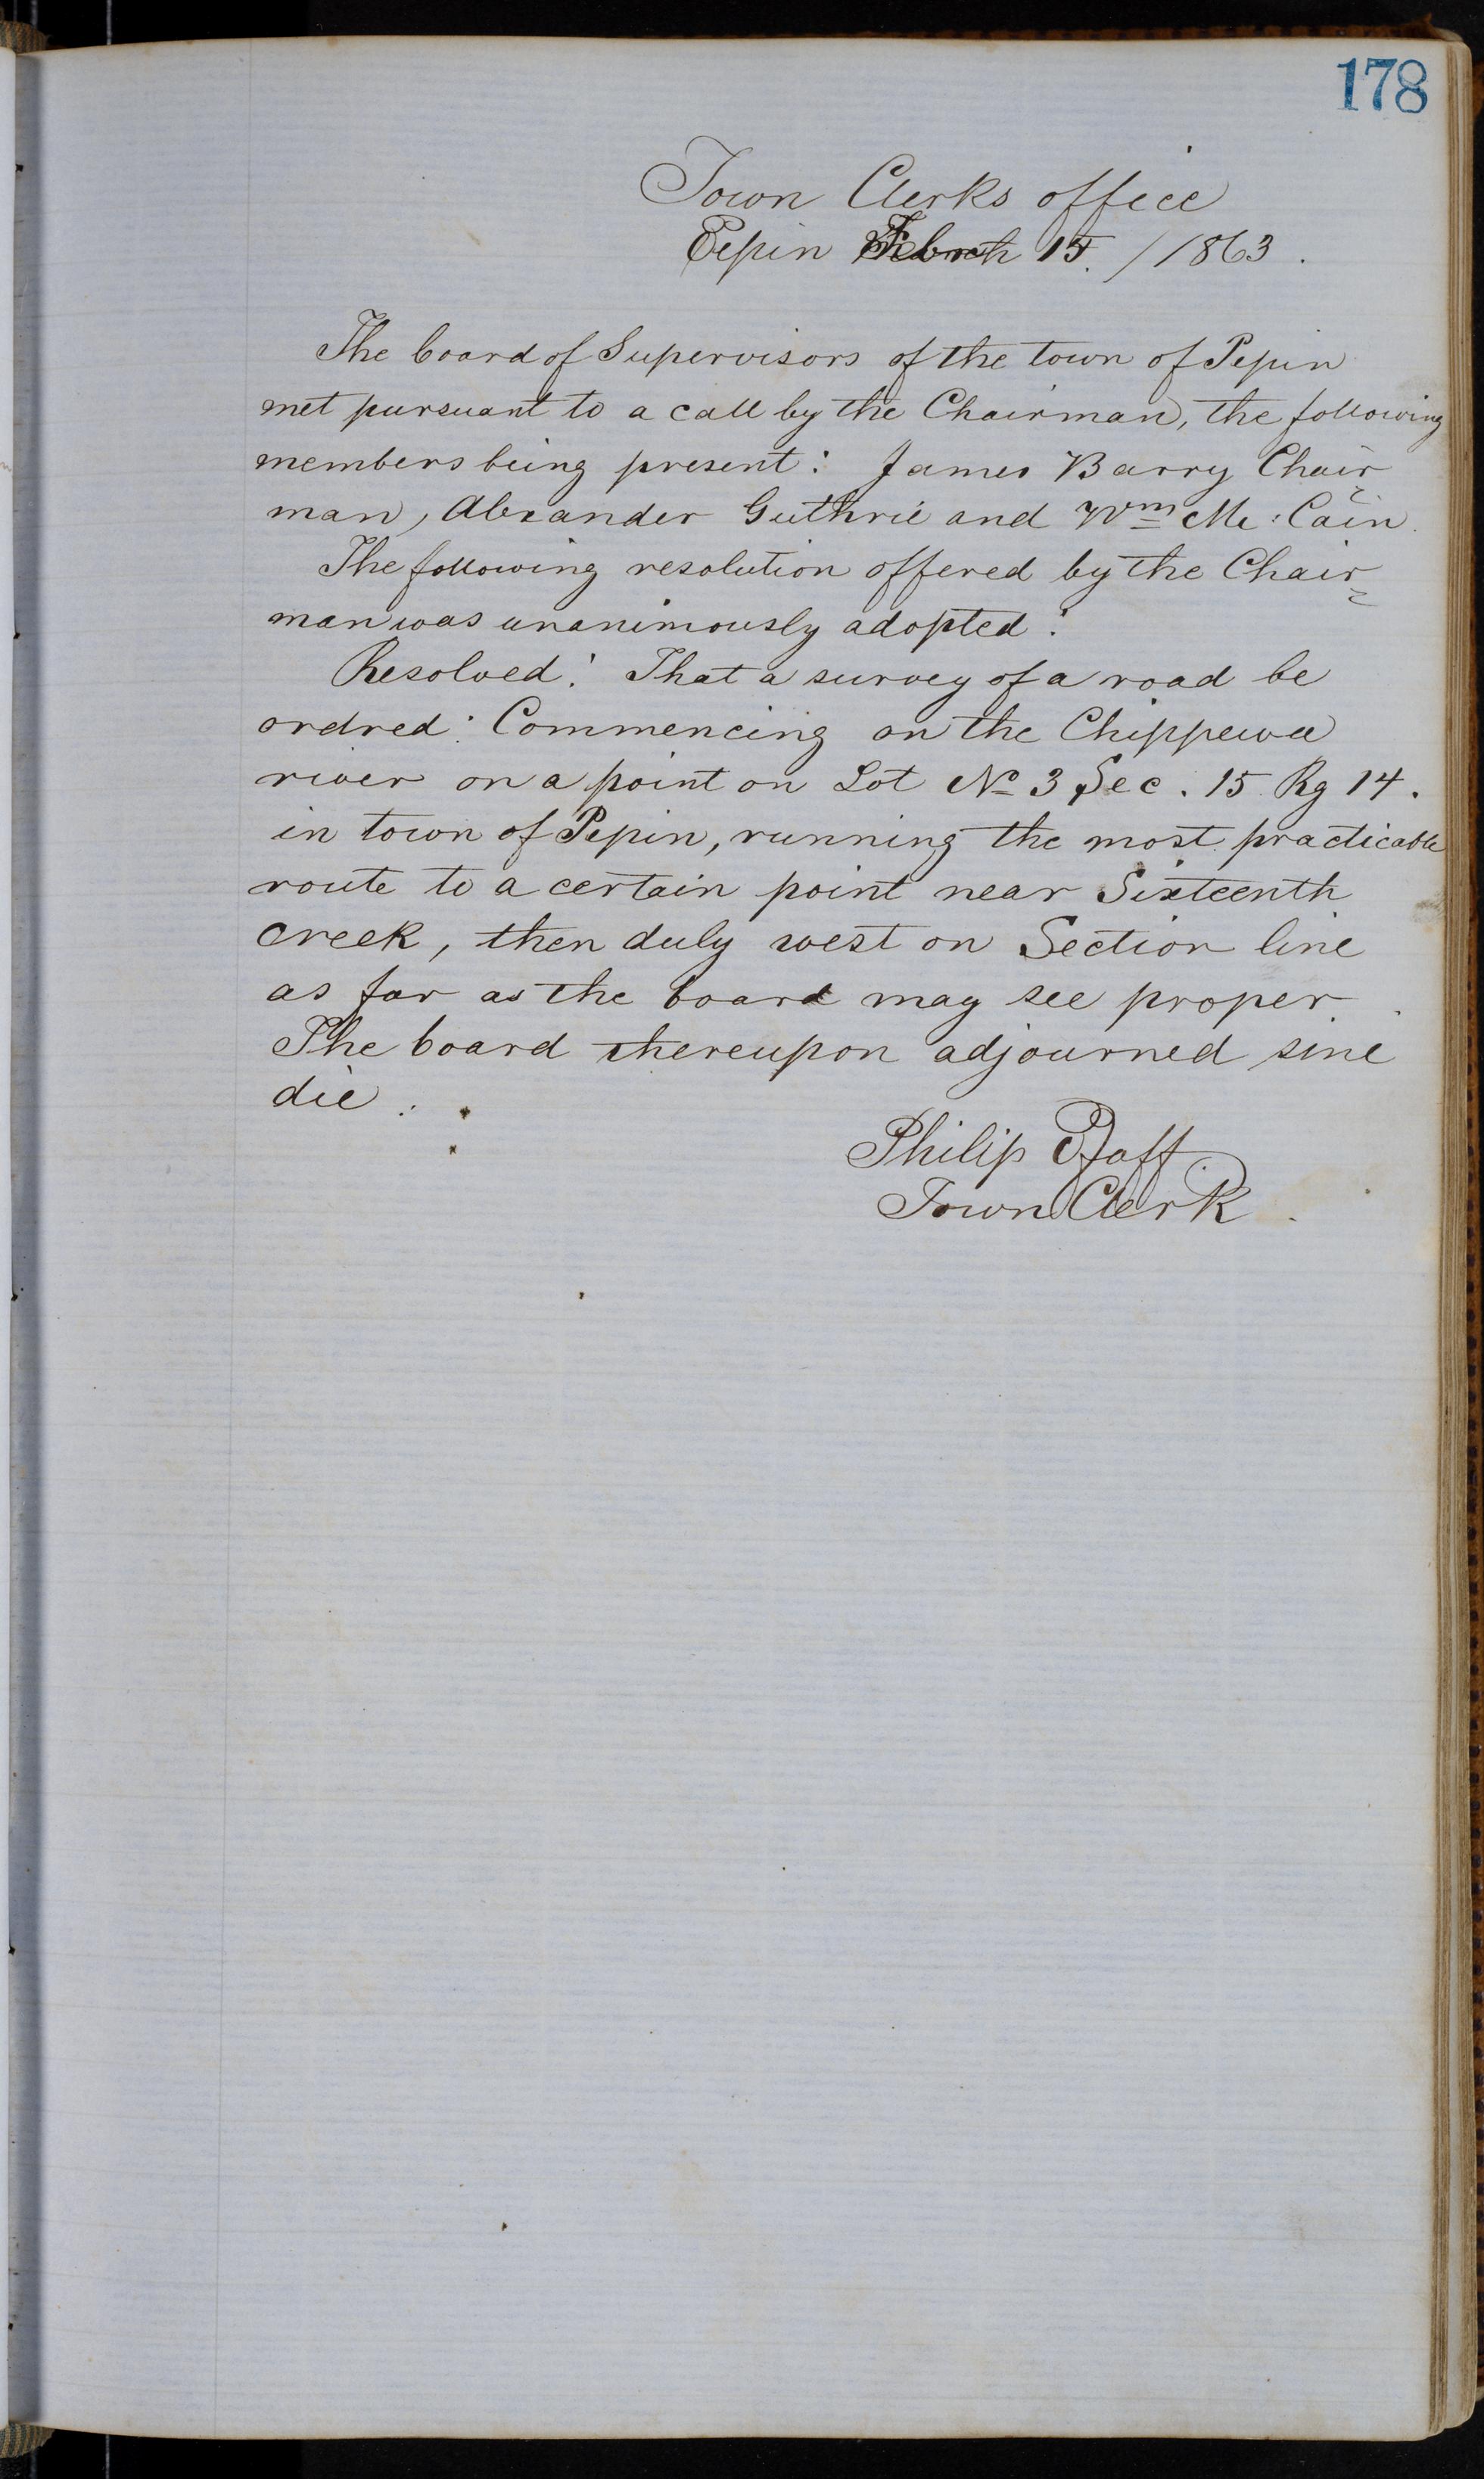 178
Town Clerks office
Pepin 15. / 1863.
The board of Supervisors of the town of Pepin
met pursuant to a call by the Chairman, the following
members being present: James Barry Chair=
man, Alexander Guthrie and Wm Mc: Cain.
The following resolution offered by the Chair=
man was unanimously adopted:
Resolved: That a survey of a road be
ordred: Commencing on the Chippewa
river on a point on Lot No 3 Sec. 15 Rg 14.
in town of Pepin, running the most practicable
route to a certain point near Sixteenth
creek, then duly west on Section line
as far as the board may see proper.
The board thereupon adjourned sine
die.
Philip Pfaff.
Town Clerk.